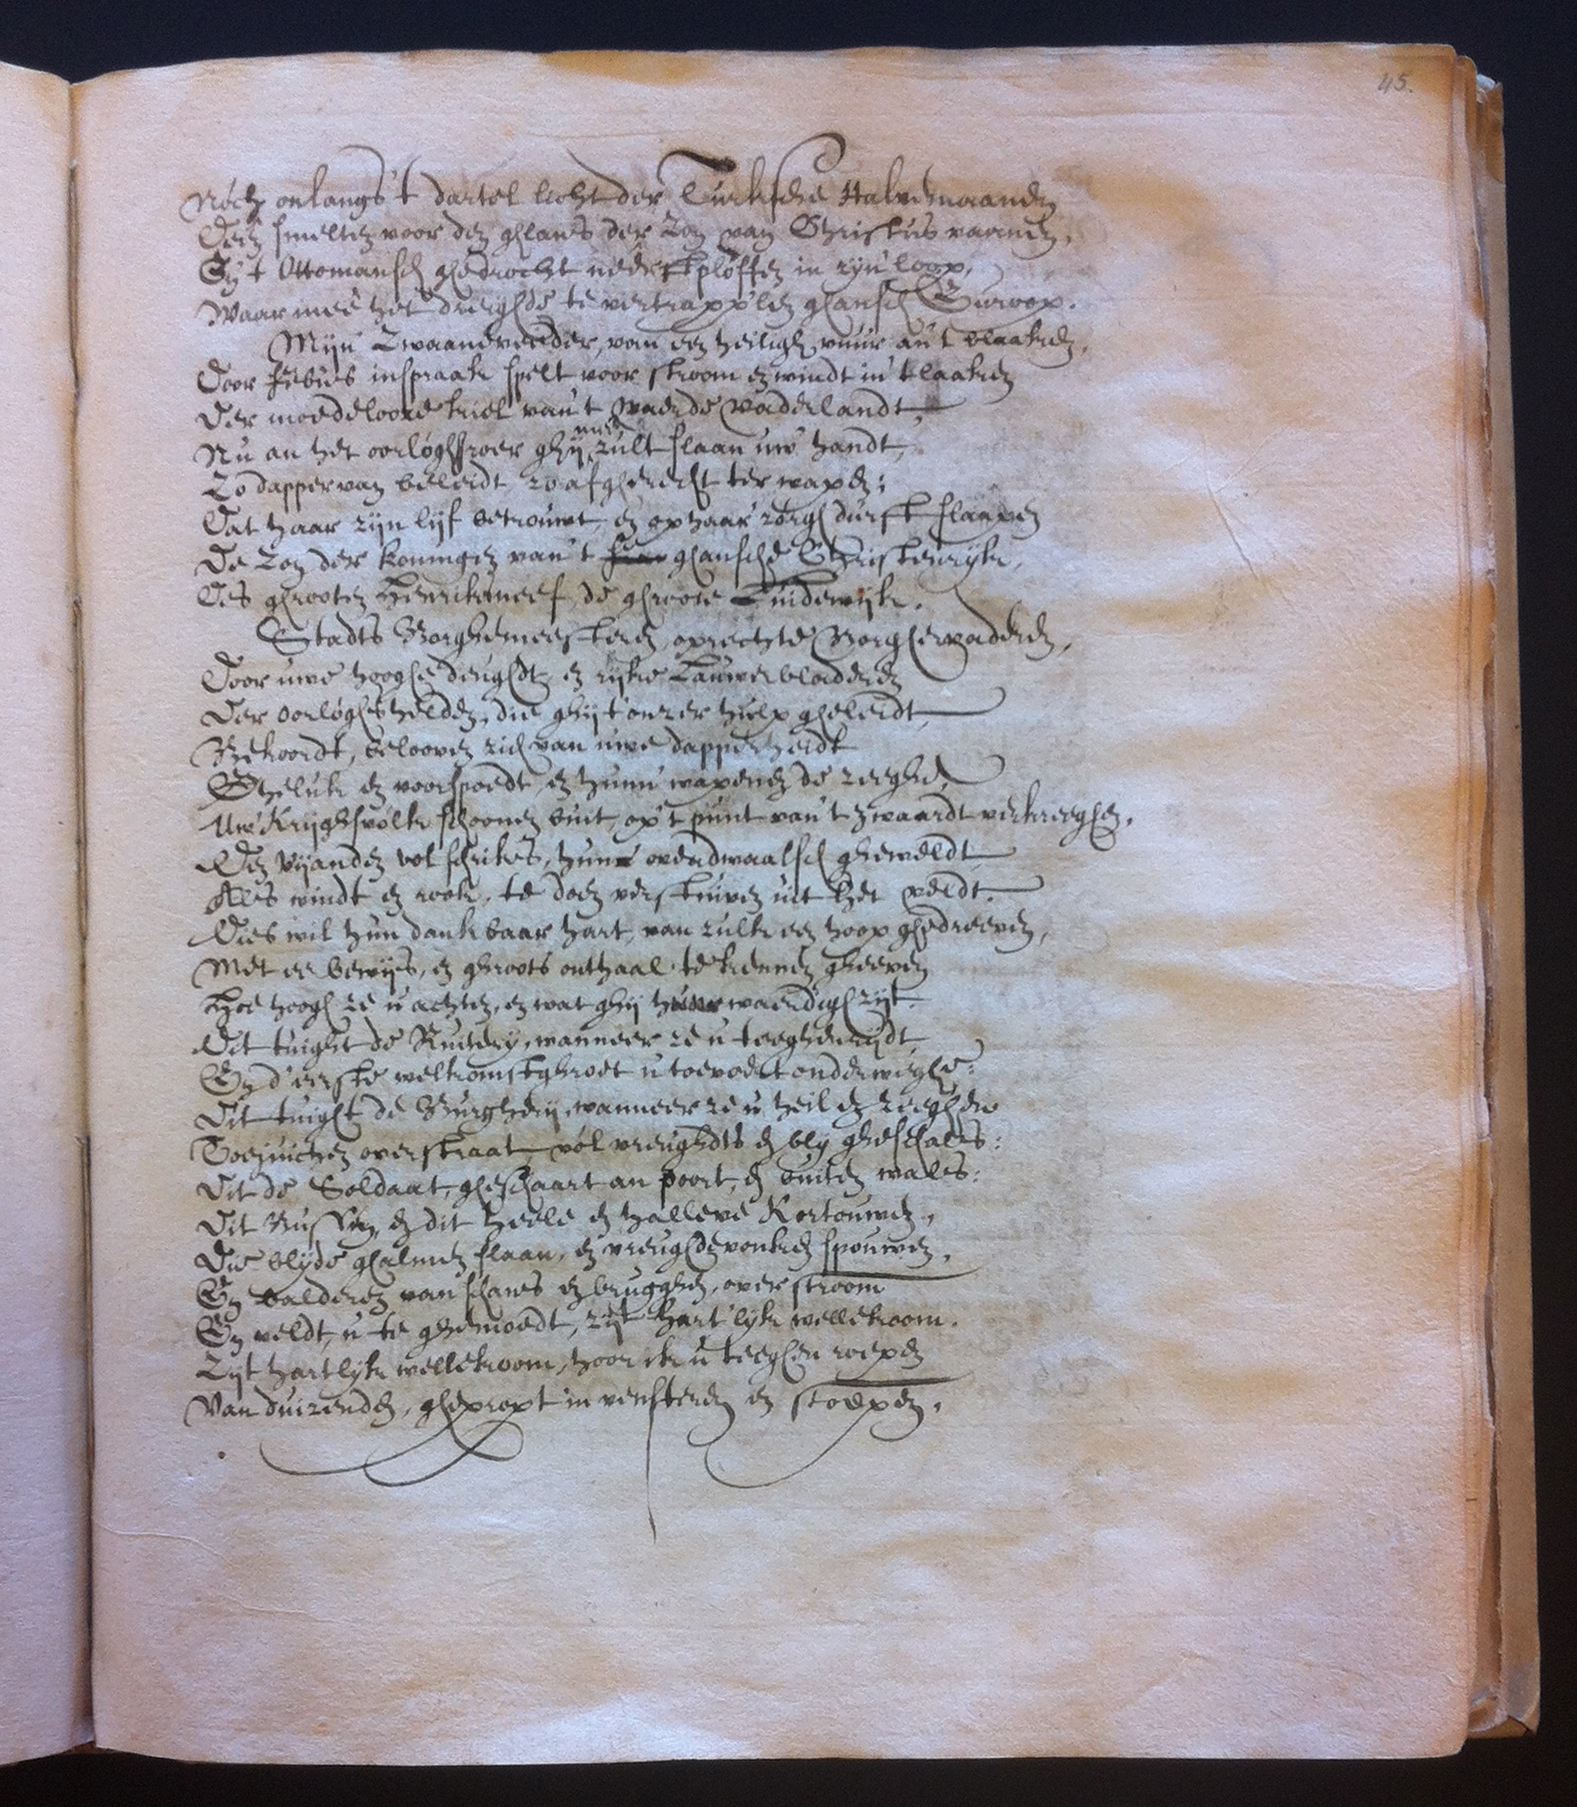 45.
Noch onlangs 't dartel licht der Turksche Halvemaanden
Deez smelten voor den glans der Zon van Christus vaanen,
En 't Ottomansch ghedrocht neer ploffen in zijn loop,
Waar meê het dreighde te vertrapplen gansch Euroop.
Mijn Zwaaneveeder, van een heiligh vuur an 't blaaken,
Door Febus inspraak spelt voor stroom en windt in 't laaken
Der moedelooze kiel van 't waerde Vaderlandt
Nu an het oorloghsroer ghij zult slaan uw handt,
Zo dapper van beleidt, zo afgherecht ter wapen;
Dat haar zijn lijf betrouwt, en op haar zorgh durft slaapen
De Zon der koningen van 't gansche Christenrijk,
Des grooten Henriks neef, de groote Luidewijk.
Stadts Borghemeesteren, oprechte Borghervaderen,
Door uwe hooghe deughdt, en rijke Lauwerbladeren
Der oorloghshelden, die ghij t'onzer hulp gheleidt,
Bekoordt, belooven zich van uwe dapperheidt
Gheluk en voorspoedt, en hunn' wapenen de zeeghe,
Uw' Krijghsvolk schoonen buit, op 't punt van 't zwaardt verkreeghen,
Den Vijanden vol schriks, hunn' overdwaalsch gheweldt
Als windt en rook, te doen verstuiven uit het veldt.
Dies wil hun dankbaar hart, van zulk een hoop ghedreeven,
Met eerbewijs, en groots onthaal te kennen gheeven
Hoe hoogh ze u achten, en wat ghij hunn' waerdigh zijt.
Dit tuight de Ruitery, wanneer ze u teeghenrijdt,
En d'eerste welkomstghroet u toevoert onderweghe:
Dit tuight de Burgherij, wanneer ze u heil en zeeghen
Toejuichen over straat, vol vreughdts en bly gheschals:
Dit de Soldaat, gheschaart an poort, en buiten wals:
Dit Bussen, en dit heele en halleve Kortouwen,
Die blijde galmen slaan, en vreughdevonken spouwen,
En balderen van schans en brugghen, over stroom
En veldt, u te ghemoedt, zijt hart'lijk wellekoom.
Zijt hartlijk wellekoom, hoor ik u teeghen roepen
Van duizenden, ghepropt in vensteren en stoepen.